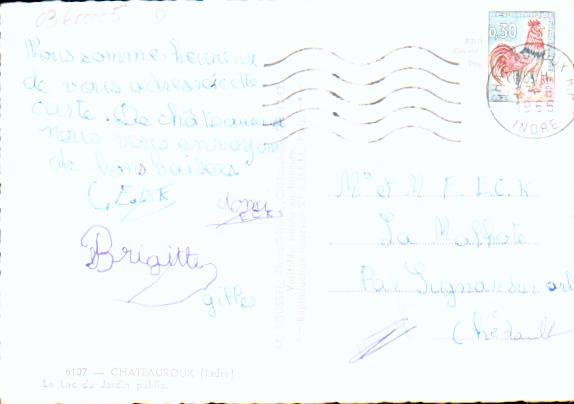 0360005 D
Nous somme heureux
de vous adresser cette
carte. De châteauroux
nous vous envoyon
de bons baisers
C, ECK
ECK
Brigitte
gilles
6107 — CHATEAUROUX (Indre)
Le Lac du Jardin public.
0,30
1965
INDRE
Mme et M F. ECK
La Malhote
Par Lignan sur orb
Hérault